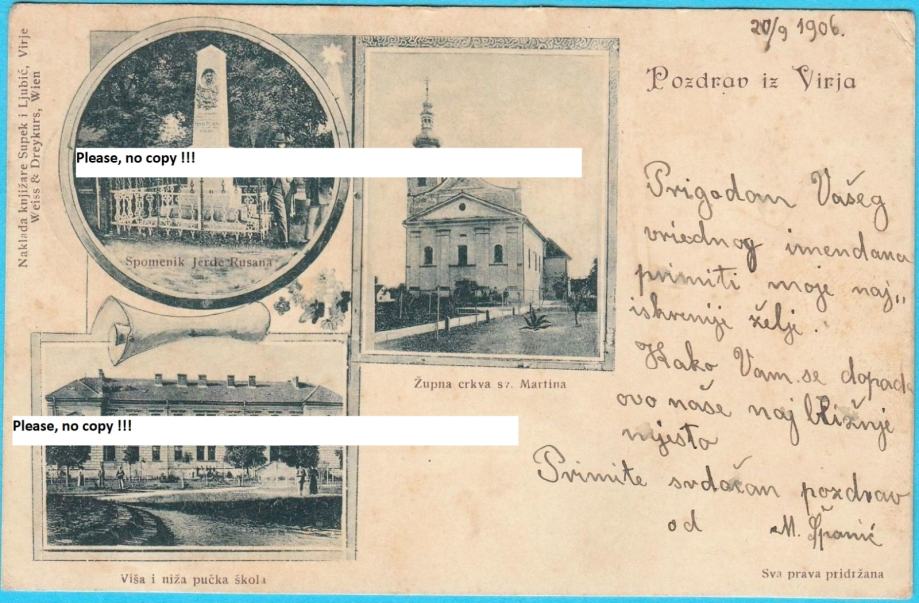 20/9 1906.
Pozdrav iz Virja
Naklada knjižare Supek i Ljubić, Virje
Weiss & Dreykurs, Wien
Please, no copy !!!
Spomenik Jerde Rusana
Župna crkva sv. Martina
Please, no copy !!!
Viša i niža pučka škola
Prigodom Vašeg
vriednog imendana
primiti moje naj„
iskrenije želje.
Kako Vam se dopada
ovo naše naj bližnje
mjesto
Primite srdačan pozdrav
od M. Španić
Sva prava pridržana